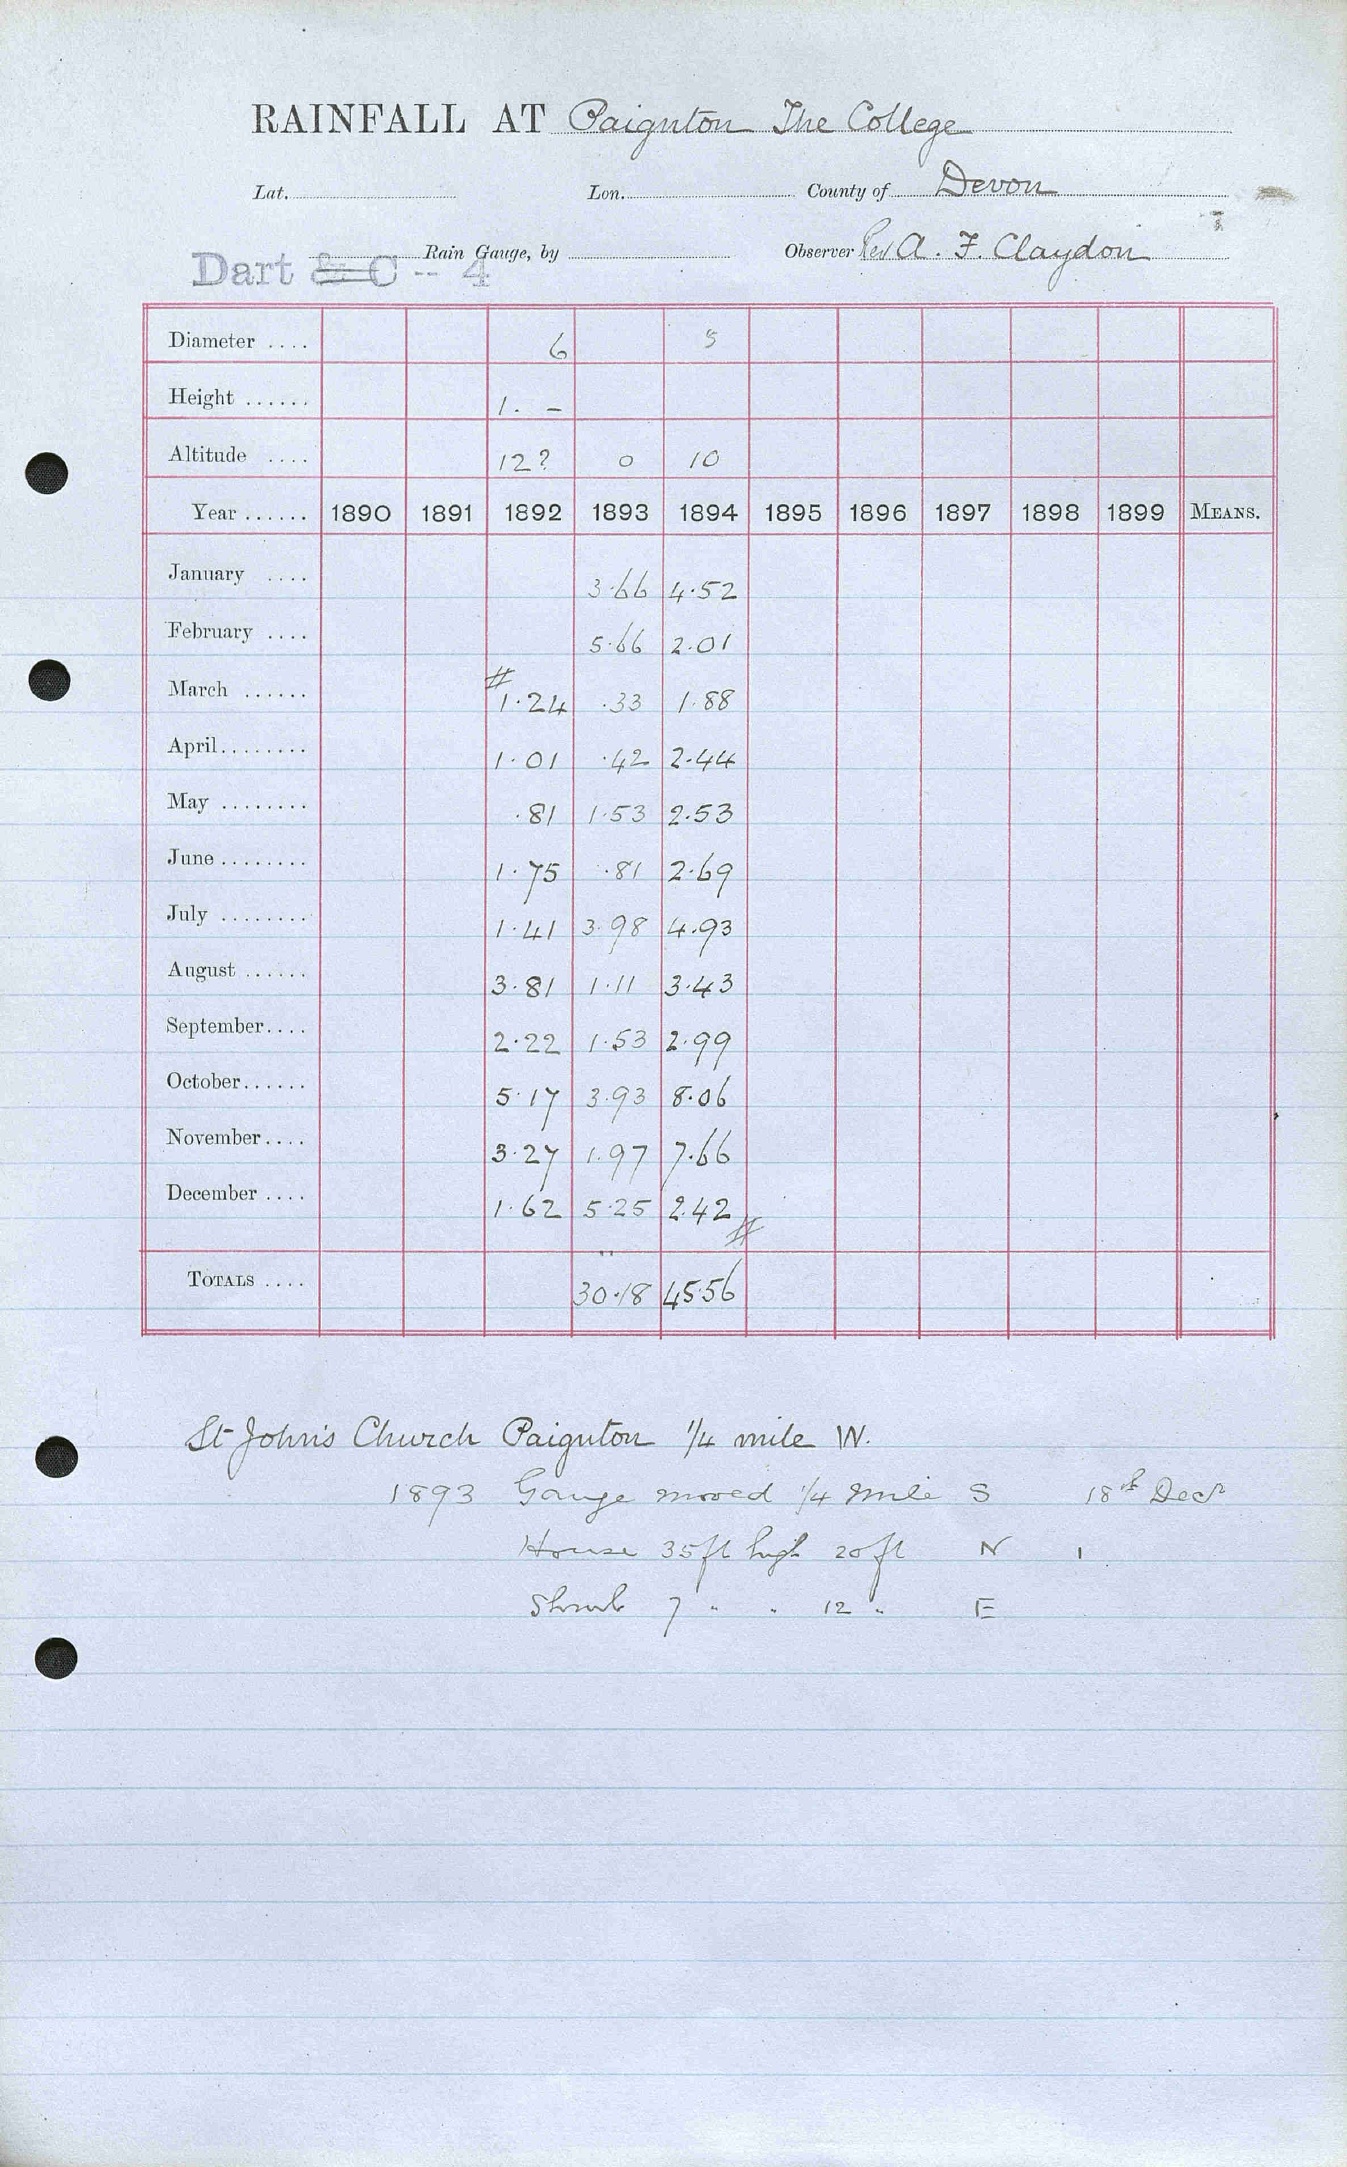 RAINFALL AT Paignton The College
Lat. Lon. County of Devon
Rain Gauge, by Observer Rev A. F. Claydon
Dart & C -- 4
Diameter .... 6 5
Height ...... 1. -
Altitude .... 12? 0 10
Year ...... 1890 1891 1892 1893 1894 1895 1896 1897 1898 1899 MEANS.
January .... 3.66 4.52
February .... 5.66 2.01
#
March ...... 1.24 .33 1.88
April........ 1.01 .42 2.44
May ........ .81 1.53 2.53
June ........ 1.75 .81 2.69
July ........ 1.41 3.98 4.93
August ...... 3.81 1.11 3.43
September.... 2.22 1.53 2.99
October...... 5.17 3.93 8.06
November.... 3.27 1.97 7.66
December .... 1.62 5.25 2.42 #
TOTALS .... 30.18 45.56
St John's Church Paignton 1/4 mile W.
1893 Gauge moved 1/4 mile S 18th Decr
House 35ft high 20ft N 1
Shrub 7 " " 12 " E